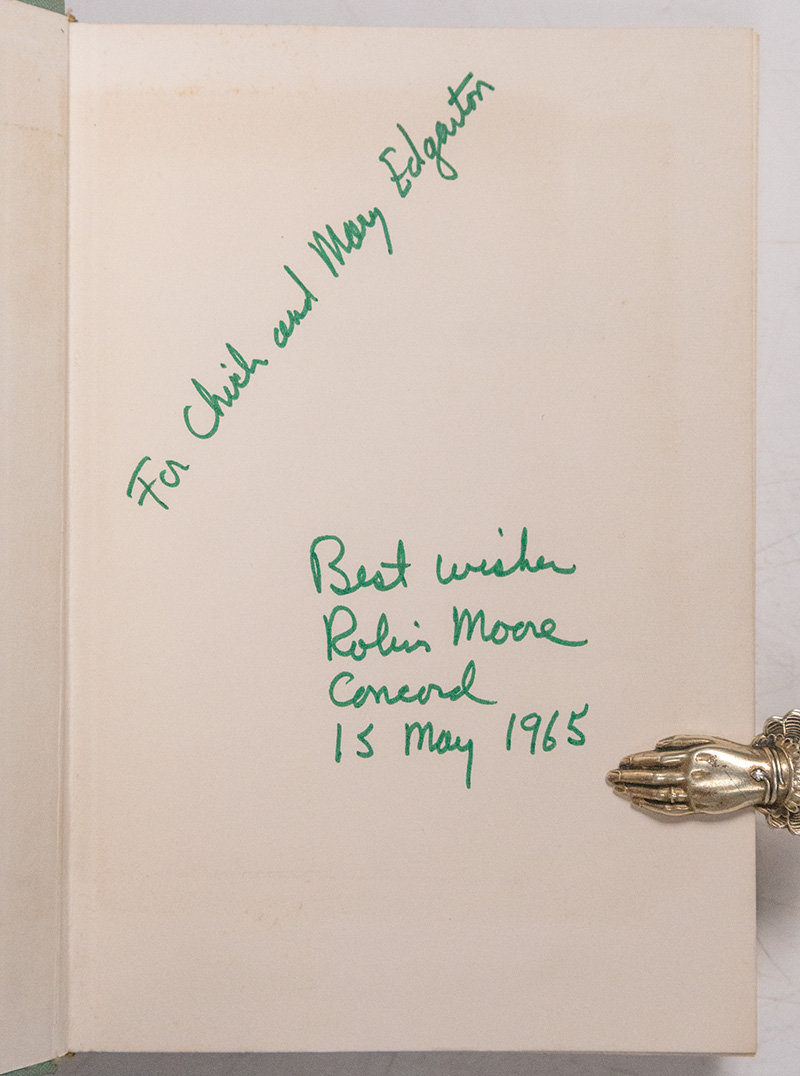 For Chick and Mary Edgarton
Best wishes
Robin Moore
Concord
15 May 1965